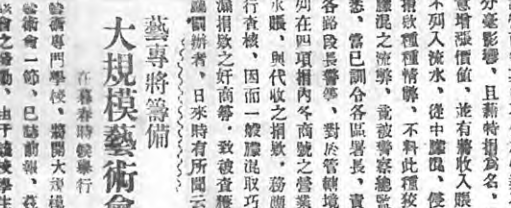 分毫影響、且藉特捐爲名、
意增漲價值、並有將收入賬
不列入流水、從中朦混、侵
捐欵種種情弊、不料此種狡
朦混之流弊、竟被警察總監
悉、當已訓令各區署長、責
各路段長警等、對於管轄境
列在四項捐內各商號之營業
水賬、與代收之捐欵、務須
行查核、因而一般朦混取巧
漏捐欵之奸商等、致被查獲
罰辦者、日來時有所聞云
藝專將籌備
大規模藝術會
在暮春時候舉行
藝術專門學校、將開大規模
藝術會一節、已誌前報、茲